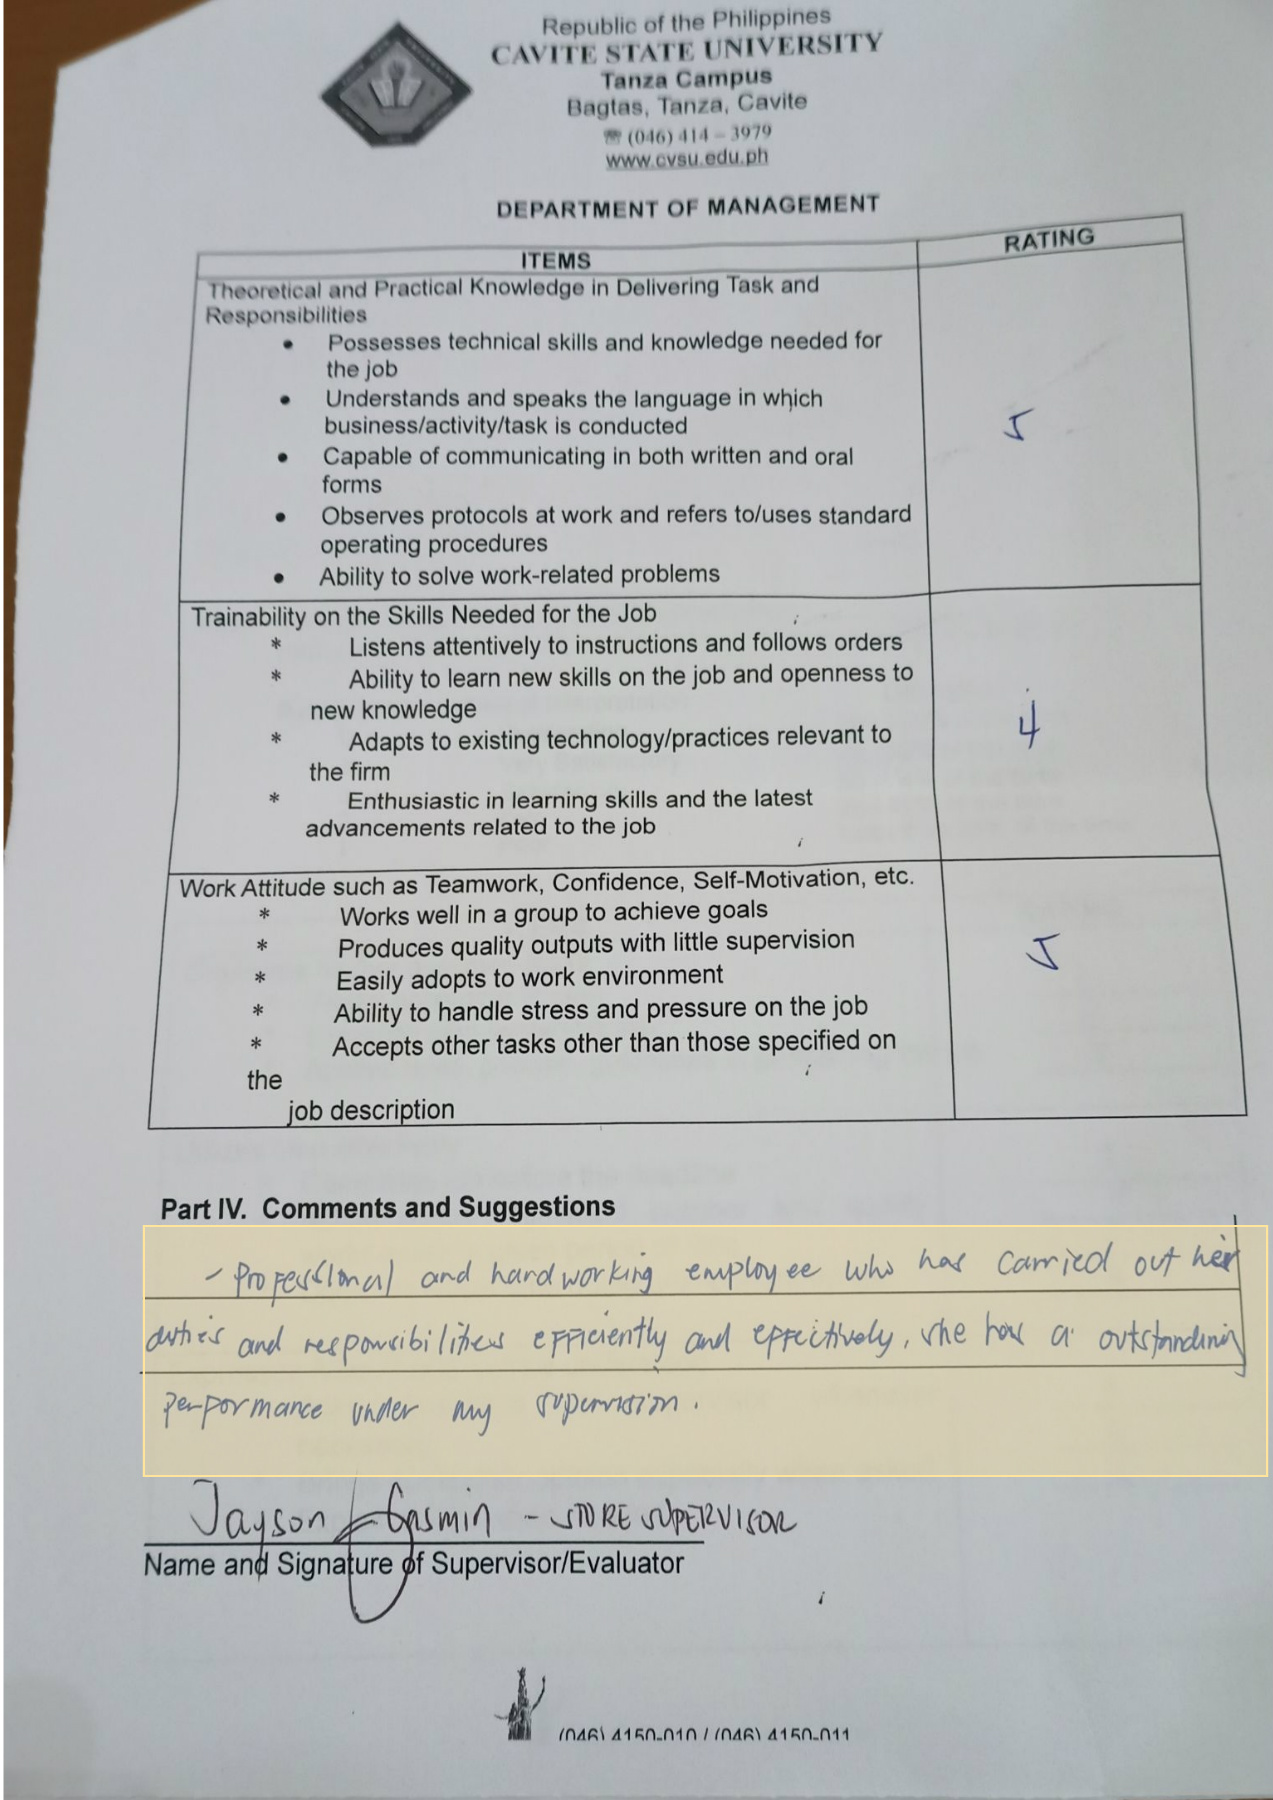 Republic of the Philippines
CAVITE STATE UNIVERSITY
Tanza Campus
Bagtas, Tanza, Cavite
☏ (046) 414 – 3979
www.cvsu.edu.ph
DEPARTMENT OF MANAGEMENT
ITEMS
RATING
Theoretical and Practical Knowledge in Delivering Task and
Responsibilities
• Possesses technical skills and knowledge needed for
the job
• Understands and speaks the language in which
business/activity/task is conducted
• Capable of communicating in both written and oral
forms
• Observes protocols at work and refers to/uses standard
operating procedures
• Ability to solve work-related problems
5
Trainability on the Skills Needed for the Job
* Listens attentively to instructions and follows orders
* Ability to learn new skills on the job and openness to
new knowledge
* Adapts to existing technology/practices relevant to
the firm
* Enthusiastic in learning skills and the latest
advancements related to the job
4
Work Attitude such as Teamwork, Confidence, Self-Motivation, etc.
* Works well in a group to achieve goals
* Produces quality outputs with little supervision
* Easily adopts to work environment
* Ability to handle stress and pressure on the job
* Accepts other tasks other than those specified on
the
job description
5
Part IV. Comments and Suggestions
- Professional and hardworking employee who has carried out her
duties and responsibilities efficiently and effectively, she has a outstanding
performance under my supervision.
Jayson Gasmin - STORE SUPERVISOR
Name and Signature of Supervisor/Evaluator
(046) 4150-010 / (046) 4150-011